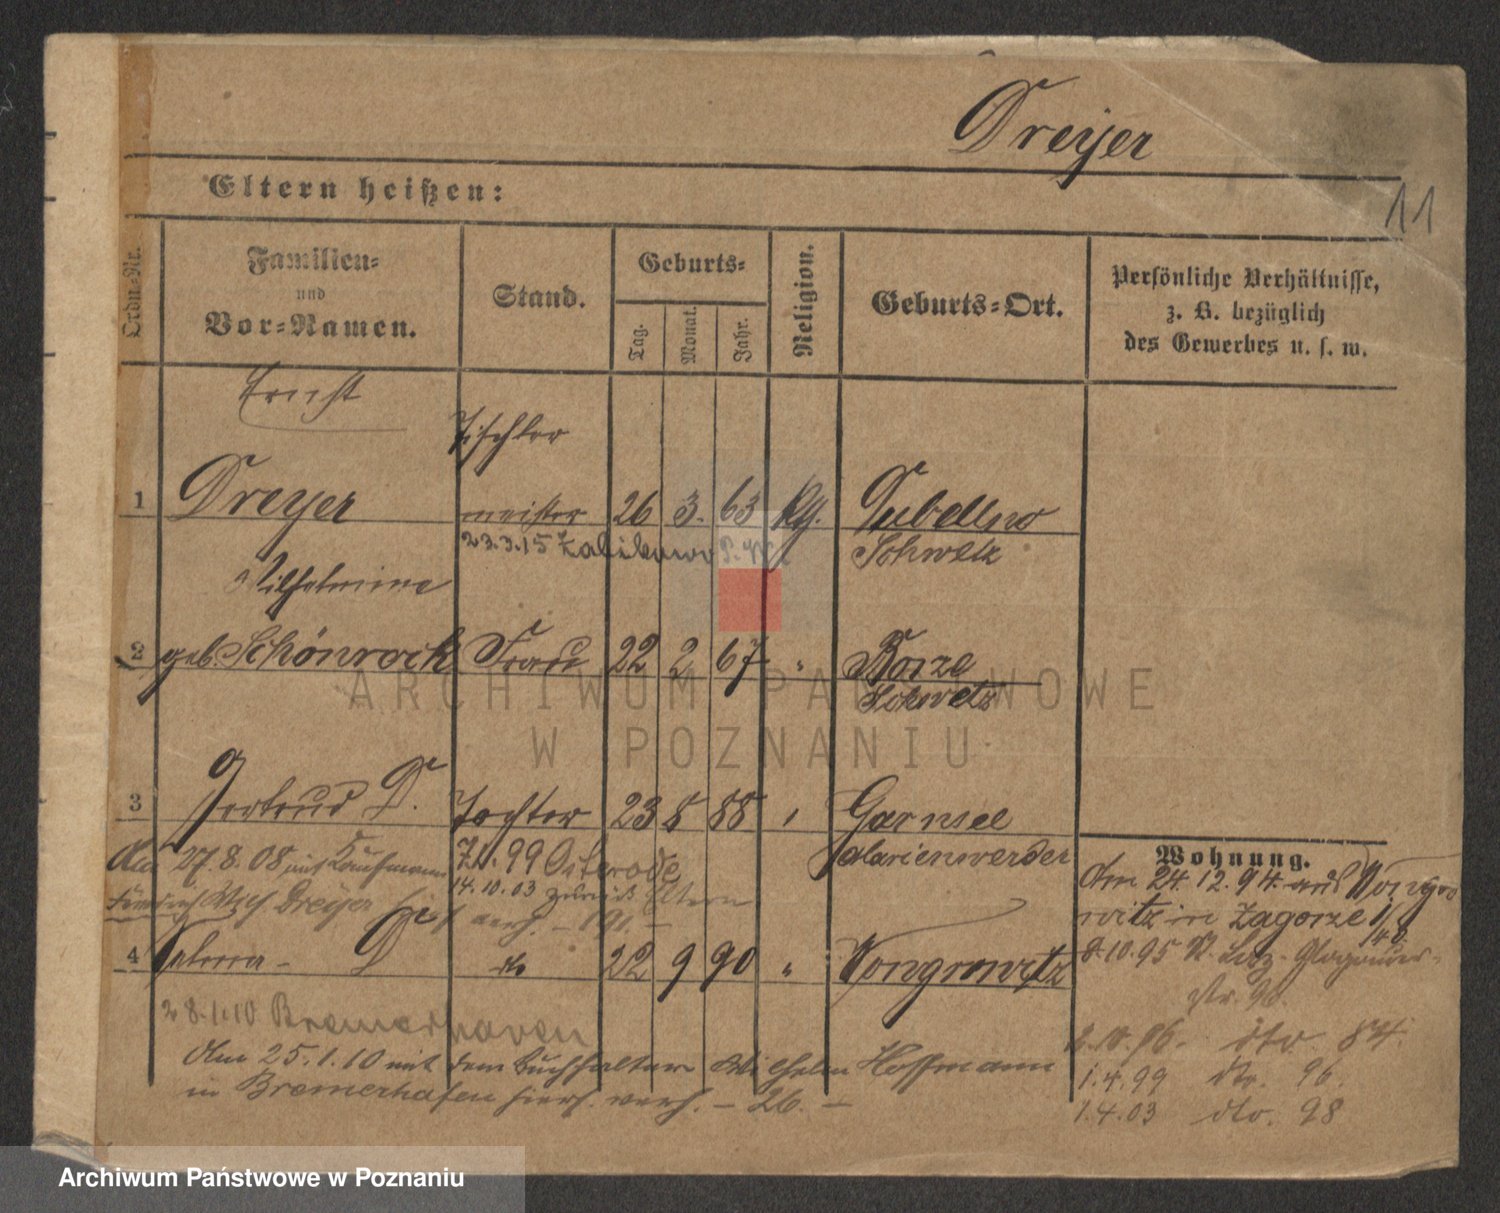 Dreyer
11
Eltern heißen:
Ordn.-Nr.
Familien-
und
Vor-Namen.
Stand.
Geburts-
Tag.
Monat.
Jahr.
Religion.
Geburts-Ort.
Persönliche Verhältnisse,
z. B. bezüglich
des Gewerbes u. s. w.
Ernst
Tischler
1 Dreyer meister 26 3. 63 Schwetz
23.3.15 Zabikowo
Wilhelmine
2 geb. Schönrock Frau 22 2 67 " Borze
Schwetz
ARCHIWUM PAŃSTWOWE
W POZNANIU
3 Gertrud D. Tochter 23 8 88 " Garnsee
Marienwerder
Am 27.8.08 mit Kaufmann 7.1.99 Osterode
14.10.03 zurück Eltern
Friedrich Dreyer hier verh. – 191. –
4 D do 22 9 90 " Wongrowitz
28.1.10 Bremerhaven
Am 25.1.10 mit dem Buchhalter Wilhelm Hoffmann
in Bremerhafen hier verh. – 26. –
Wohnung.
Am 24.12.94 aus Wongro
witz in Zagorze 1/
8.10.95 Glogauer-
str. 90.
2.10.96. dto 84.
1.4.99 dto. 96.
1.4.03 dto. 98
Archiwum Państwowe w Poznaniu